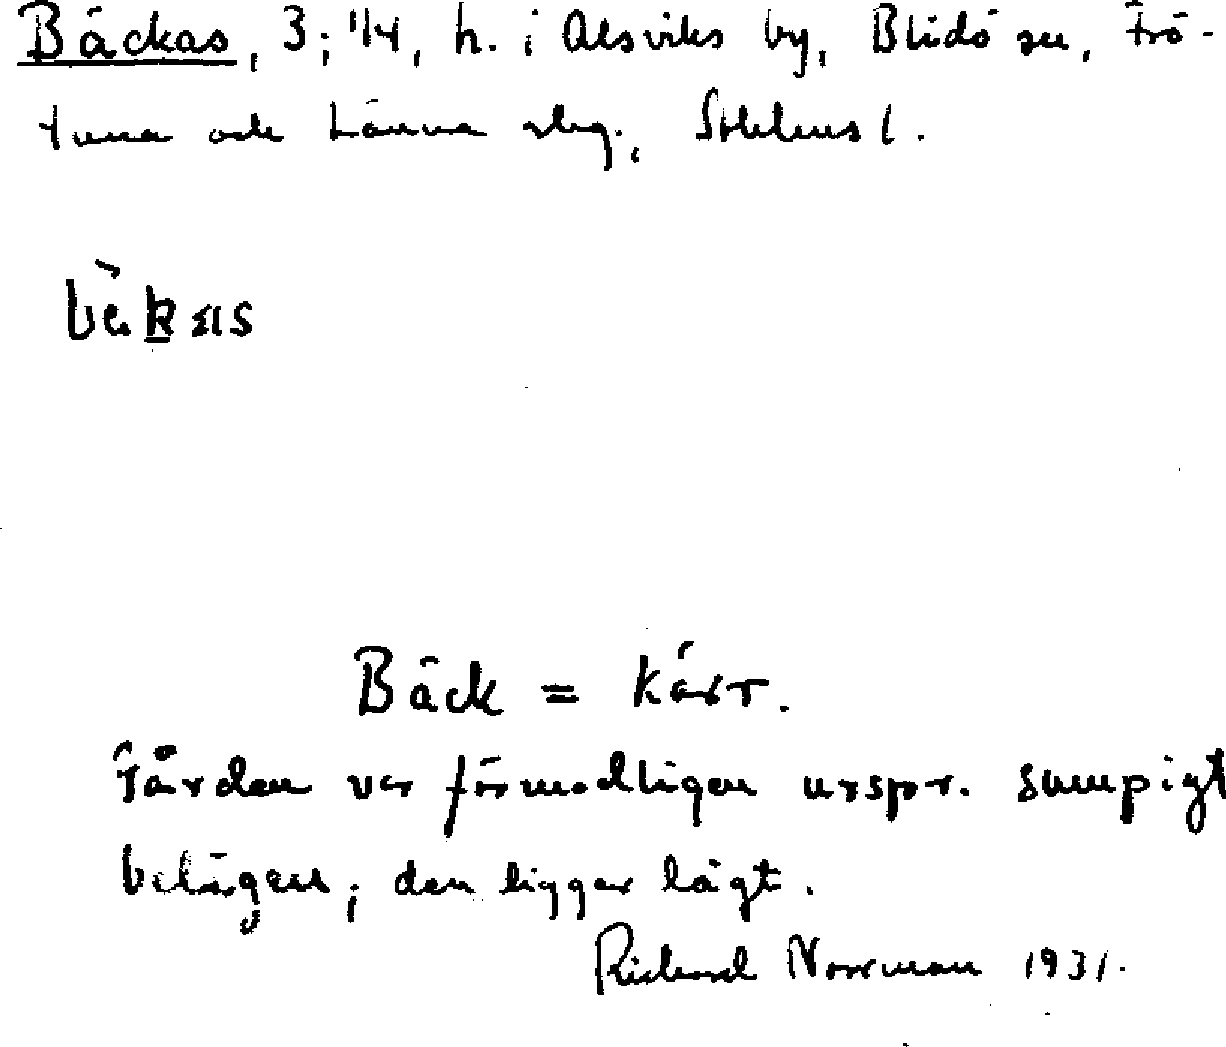 Bäckas, 3; 1/4, h. i Alsviks by, Blidö sn, Frö-
tuna och Länna slg., Stklms l.
Bäck = kärr.
Gården var förmodligen urspr. sumpigt
belägen; den ligger lågt.
Richard Norrman 1931.